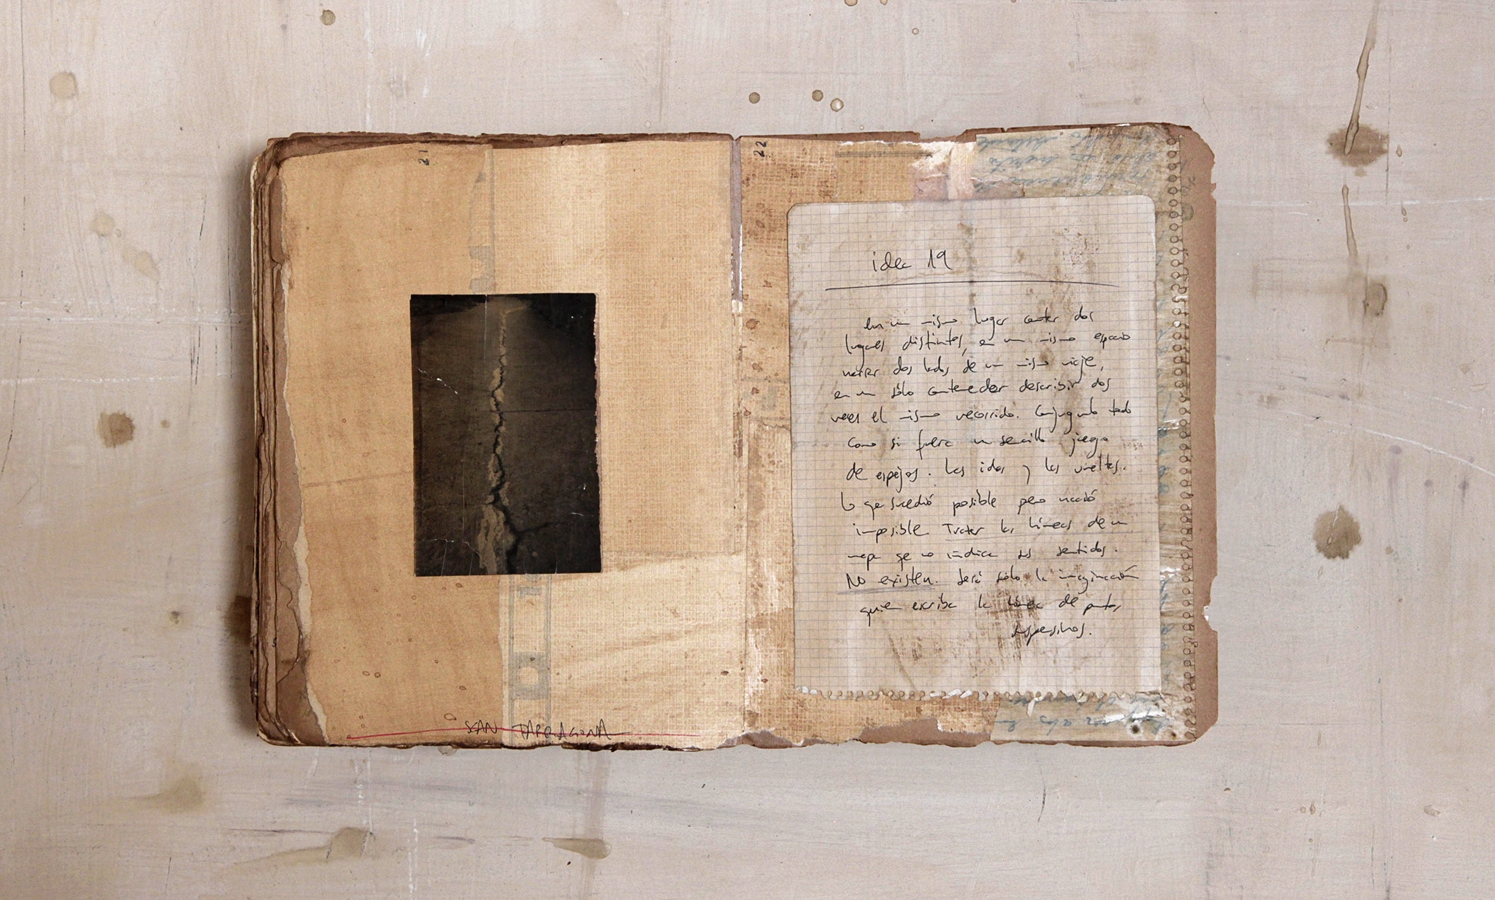 21
SAN TARRAGONA
22
idea 19
En un mismo lugar contar dos
lugares distintos, en un mismo espacio
narrar dos lados de un mismo viaje,
en un sólo contenedor describir dos
veces el mismo recorrido. Conjugando todo
como si fuera un sencillo juego
de espejos. Las idas y las vueltas.
Lo que sucedió posible pero nació
imposible Trazar las líneas de un
mapa que no indica sus sentidos.
No existen. Será sólo la imaginación
quien escriba la línea de puntos
suspensivos.